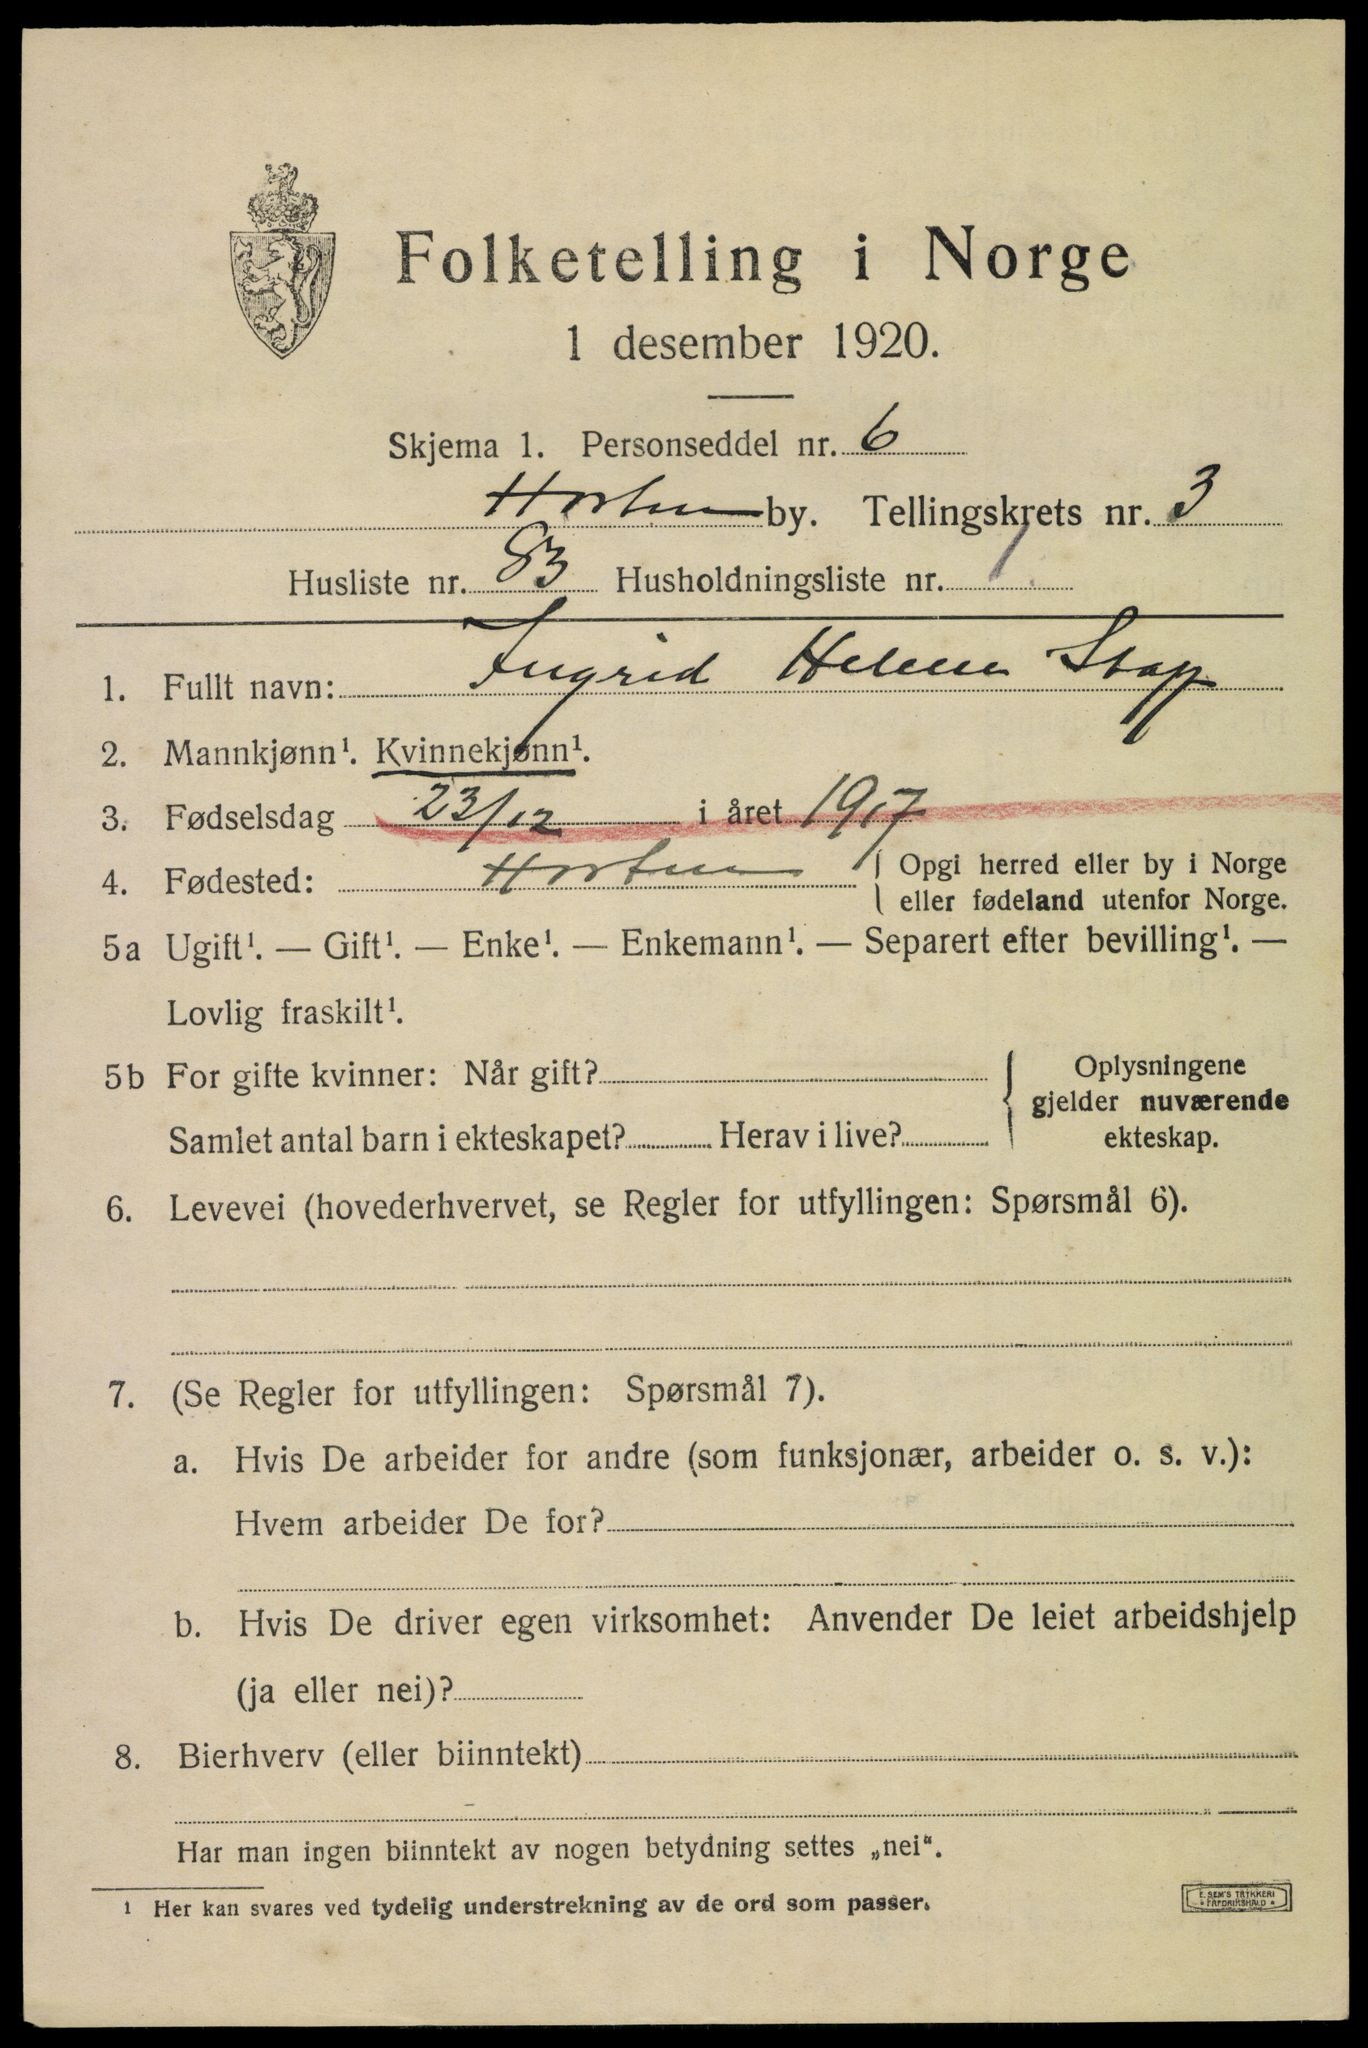 Folketelling i Norge
1 desember 1920.
Skjema 1. Personseddel nr. 6
Horten by. Tellingskrets nr. 3
Husliste nr. 83 Husholdningsliste nr. 1
1. Fullt navn: Ingrid Helene Stapp
2. Mannkjønn¹. Kvinnekjønn¹.
3. Fødselsdag 23/12 i året 1917
4. Fødested: Horten { Opgi herred eller by i Norge
eller fødeland utenfor Norge.
5a Ugift¹. — Gift¹. — Enke¹. — Enkemann¹. — Separert efter bevilling¹. —
Lovlig fraskilt¹.
5b For gifte kvinner: Når gift? { Oplysningene
gjelder nuværende
Samlet antal barn i ekteskapet? Herav i live? ekteskap.
6. Levevei (hovederhvervet, se Regler for utfyllingen: Spørsmål 6).
7. (Se Regler for utfyllingen: Spørsmål 7).
a. Hvis De arbeider for andre (som funksjonær, arbeider o. s. v.):
Hvem arbeider De for?
b. Hvis De driver egen virksomhet: Anvender De leiet arbeidshjelp
(ja eller nei)?
8. Bierhverv (eller biinntekt)
Har man ingen biinntekt av nogen betydning settes „nei“.
¹ Her kan svares ved tydelig understrekning av de ord som passer.
E. SEM'S TRYKKERI
FREDRIKSHALD